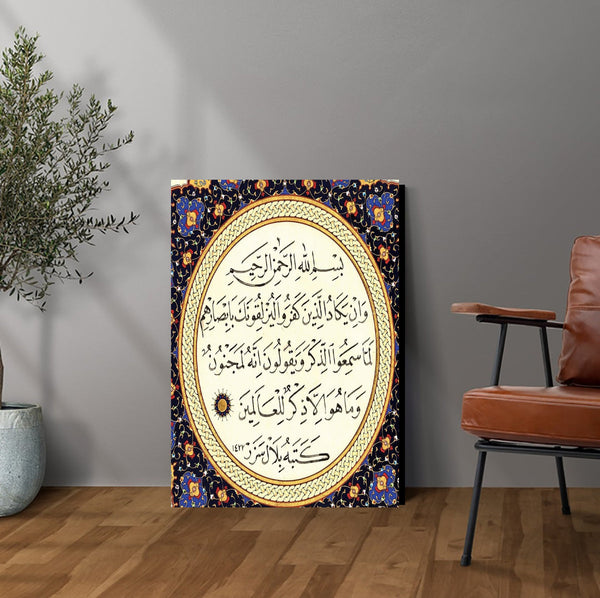 بسم الله الرحمن الرحيم
وان يكاد الذين كفروا ليزلقونك بابصارهم
لما سمعوا الذكر ويقولون انه لمجنون
وما هو الا ذكر للعالمين
كتبه بلال سزر ١٤٢٢